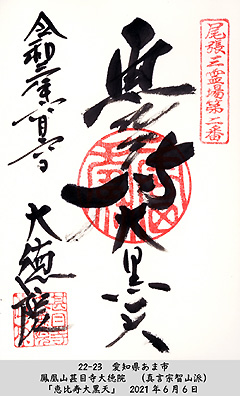 尾張三霊場第二番
恵比寿大黒天
令和三年六月六日
大徳院
22-23 愛知県あま市
鳳凰山甚目寺大徳院 (真言宗智山派)
「恵比寿大黒天」 2021年6月6日